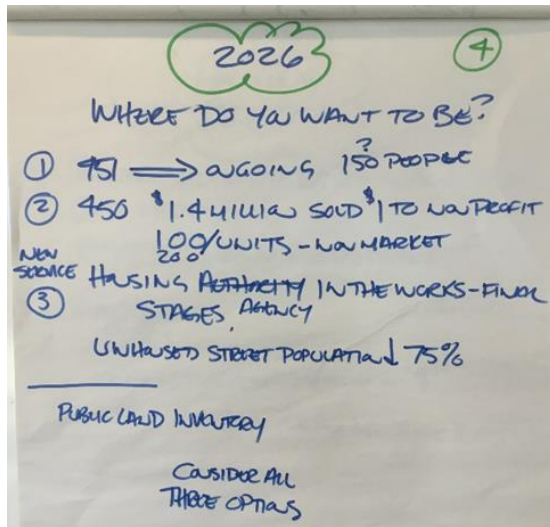 2026
4
WHERE DO YOU WANT TO BE?
① 951 ⟹ ONGOING 150 PEOPLE
?
② 450 $1.4 MILLION SOLD $1 TO NON PROFIT
100/UNITS - NON MARKET
200
NEW SERVICE
③ HOUSING AUTHORITY IN THE WORKS - FINAL
STAGES. AGENCY
UNHOUSED STREET POPULATION ↓ 75%
PUBLIC LAND INVENTORY
CONSIDER ALL
THREE OPTIONS